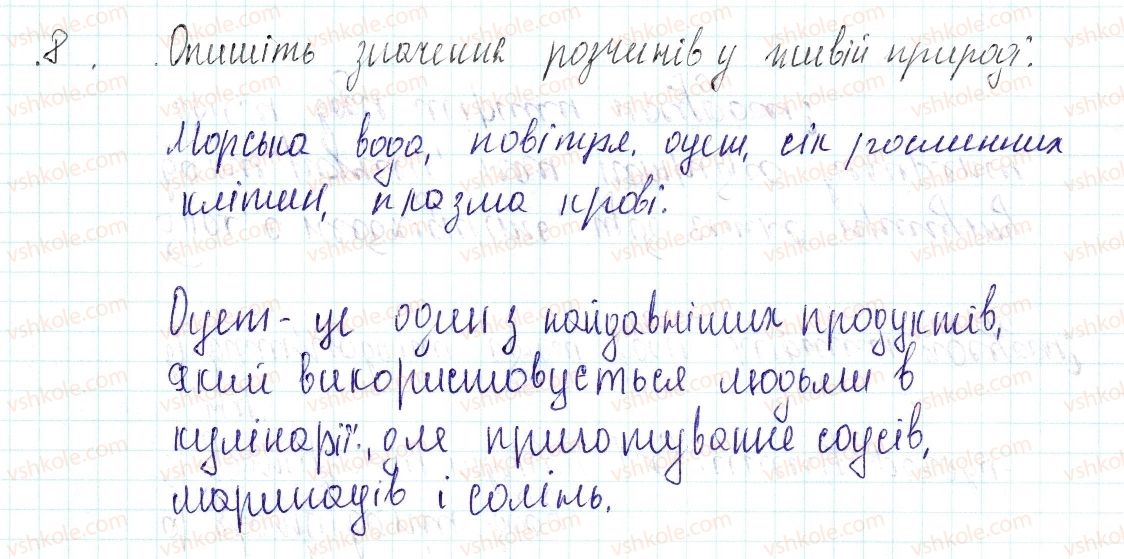 8. Опишіть значення розчинів у живій природі.
Морська вода, повітря, оцет, сік рослинних
клітин, плазма крові.
Оцет - це один з найдавніших продуктів,
який використовується людьми в
кулінарії, для приготування соусів,
маринадів і солінь.